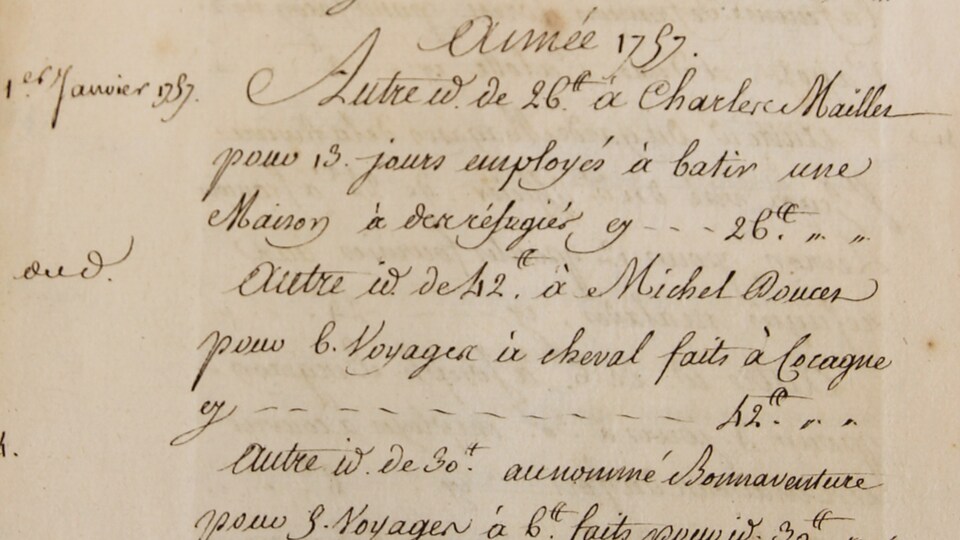 Année 1757.
1er Janvier 1757. Autre id. de 26tt à Charles Mailler
pour 13. jours employés à batir une
Maison à des réfugiés cy - - - 26tt. „ „
dud. Autre id. de 42tt. à Michel Doucet
pour 6. Voyages à cheval faits à Cocagne
cy - - - - - - - - - - - - - 42tt. „ „
4. Autre id. de 30tt. au nommé Bonnaventure
pour 5. Voyages à 6tt faits pour id. 30tt